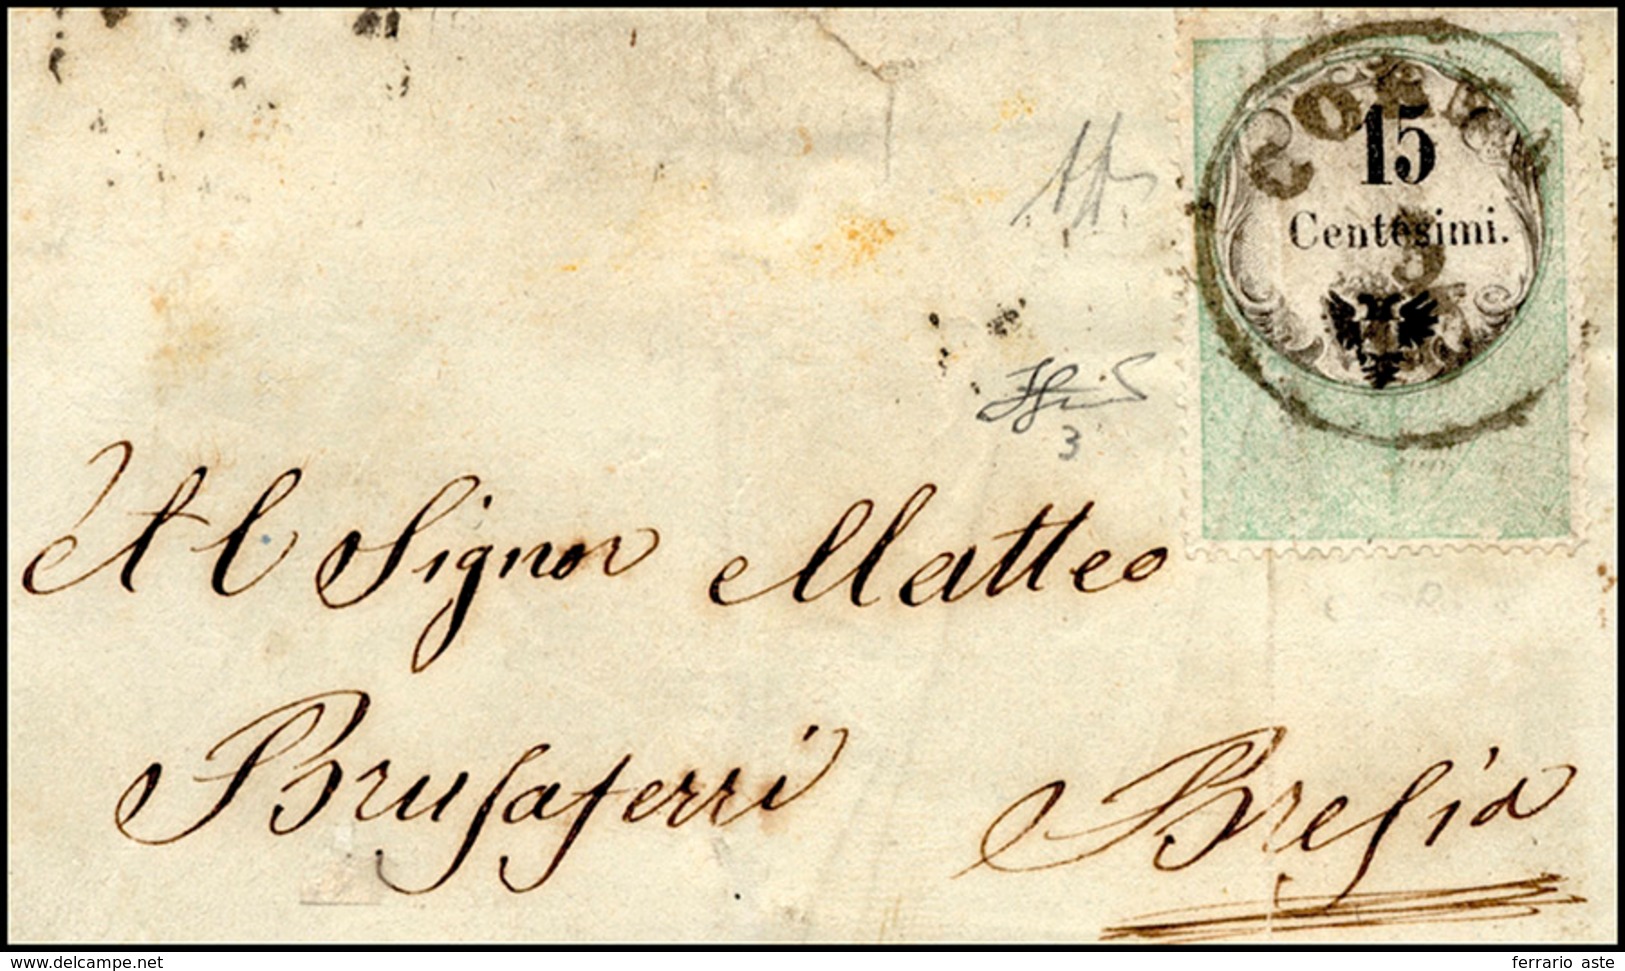 15
Centesimi.
3
Al Signor Matteo
Brusaferri Bresia
www.delcampe.net
ferrario aste